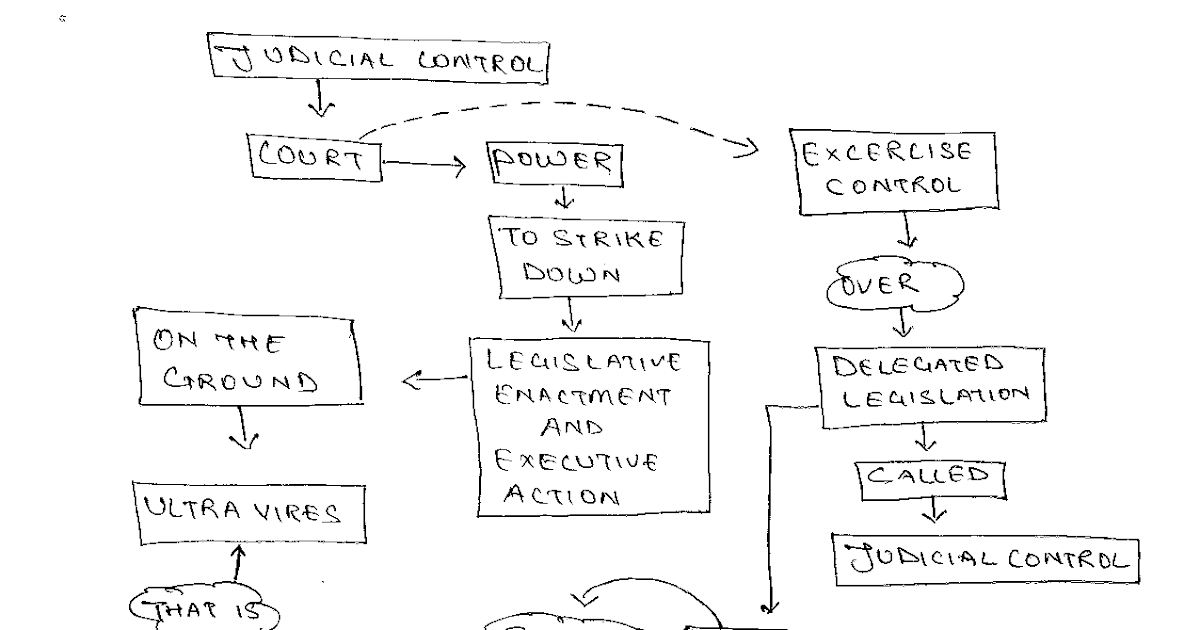 JUDICIAL CONTROL
COURT
POWER
EXCERCISE
CONTROL
TO STRIKE
DOWN
OVER
ON THE
GROUND
LEGISLATIVE
ENACTMENT
AND
EXECUTIVE
ACTION
DELEGATED
LEGISLATION
CALLED
ULTRA VIRES
JUDICIAL CONTROL
THAT IS